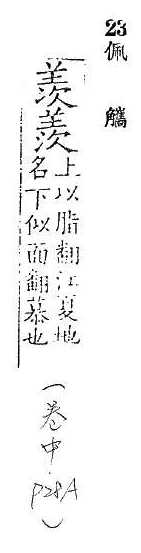 23
佩觿
羡羨
上以脂翻江夏地
名下似面翻慕也
(卷中.P28A)